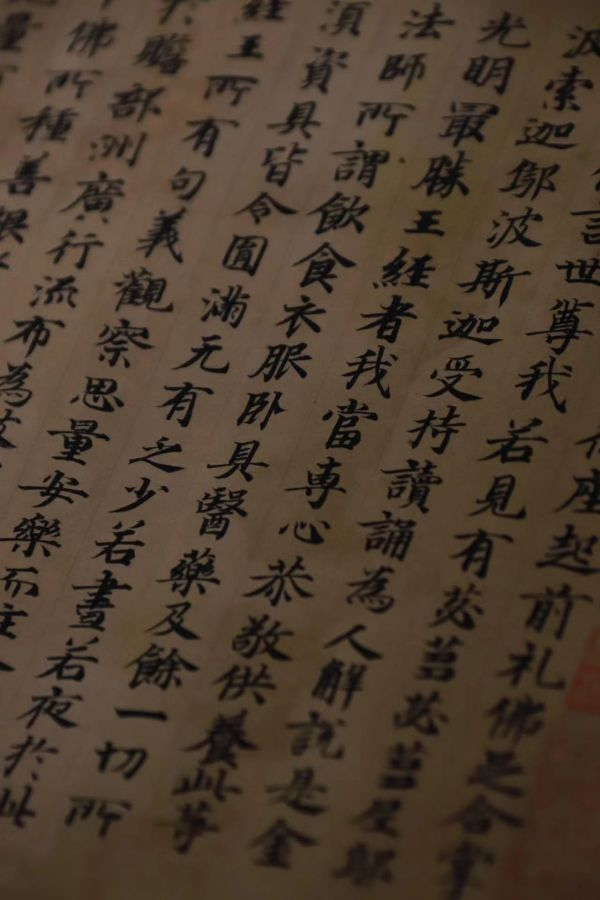 座起前礼佛足合掌
言世尊我若見有苾芻苾芻尼鄔
波索迦鄔波斯迦受持讀誦為人解說是金
光明最勝王經者我當專心恭敬供養此等
法師所謂飲食衣服卧具醫藥及餘一切所
須資具皆令圓滿元有乏少若晝若夜於此
經王所有句義觀察思量安樂而住
於贍部洲廣行流布為
佛所種善根
量